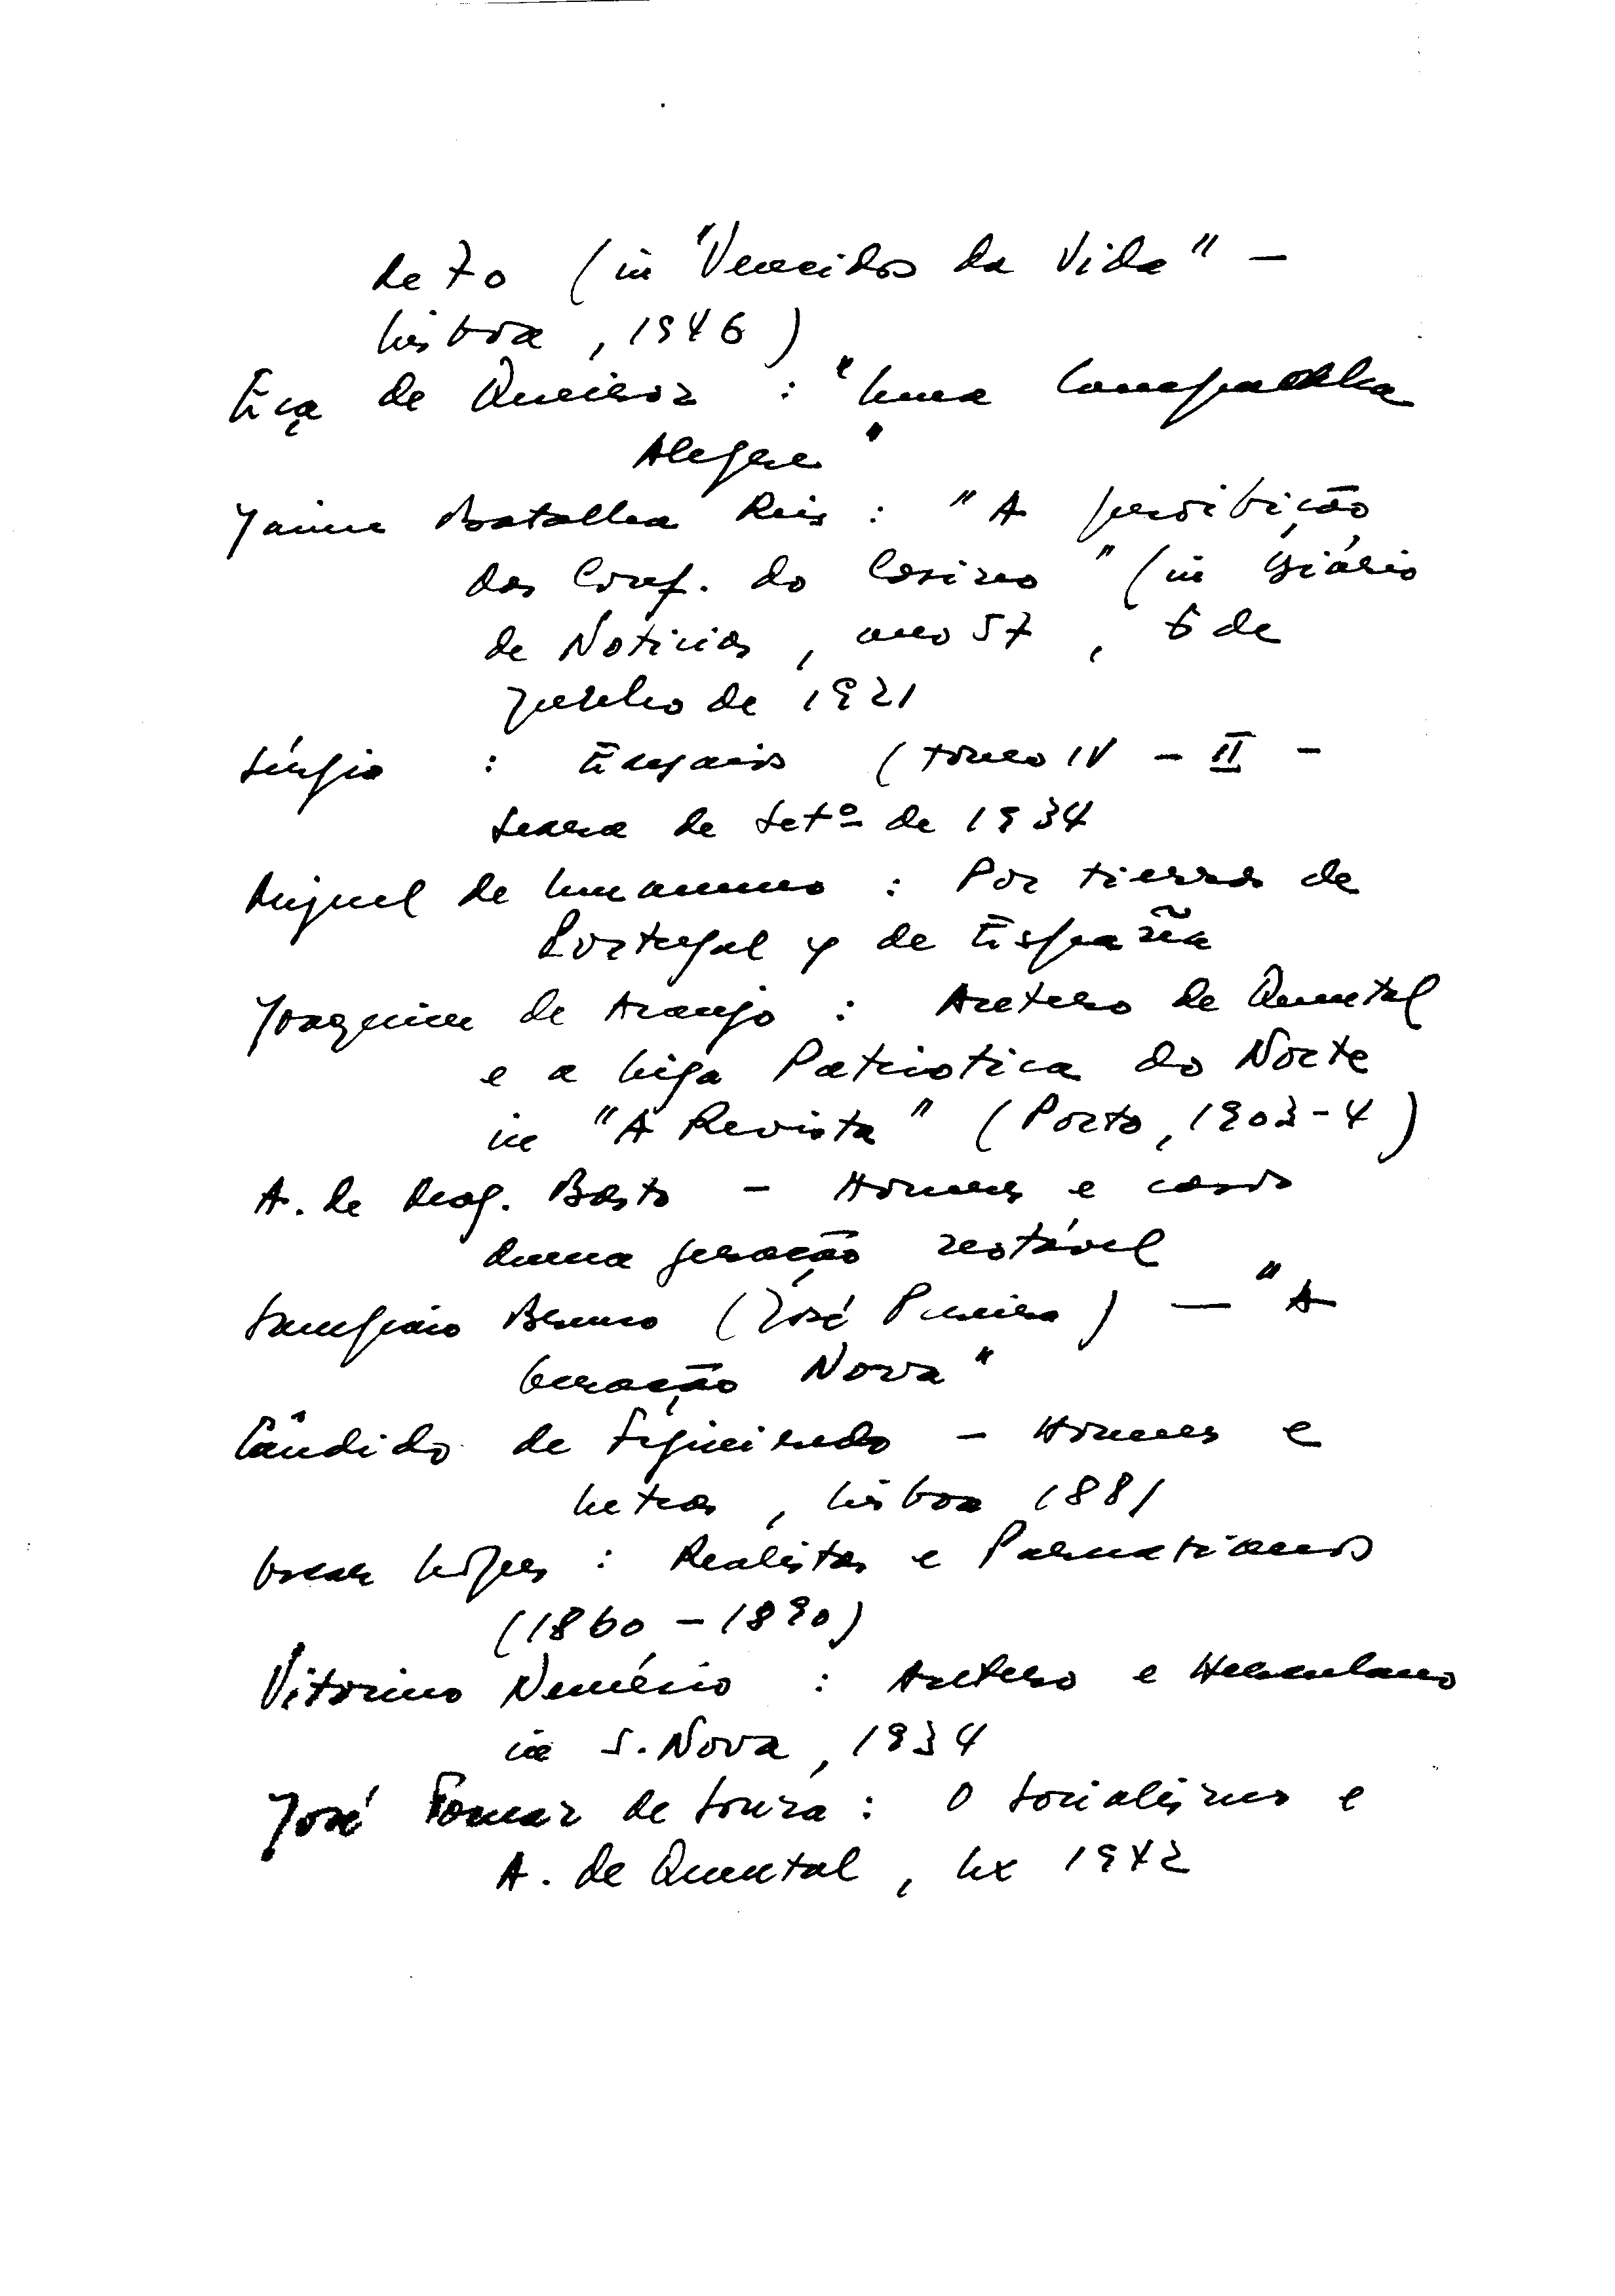 de 70 (in "Vencidos da Vida" –
Lisboa, 1946)
Eça de Queiroz : "Uma Campanha
Alegre"
Jaime Batalha Reis : "A proibição
das Conf. do Casino" (in Diário
de Noticias, ano 57, 6 de
Junho de 1921
Sérgio : Ensaios (tomo IV – II –
Seara de Setº de 1934
Miguel de Unamuno : Por tierras de
Portugal y de España
Joaquim de Araujo : Antero de Quental
e a Liga Patriotica do Norte
in "A Revista" (Porto, 1903-4)
A. de Mag. Basto – Homens e casos
duma geração notável
Sampaio Bruno (José Pereira) – "A
Geração Nova"
Cândido de Figueiredo – Homens e
Letras, Lisboa 1881
Oscar Lopes : Realistas e Parnasianos
(1860 – 1890)
Vitorino Nemésio : Antero e Herculano
in S. Nova, 1934
José Tomaz de Souza : O Socialismo e
A. de Quental, Lx 1942